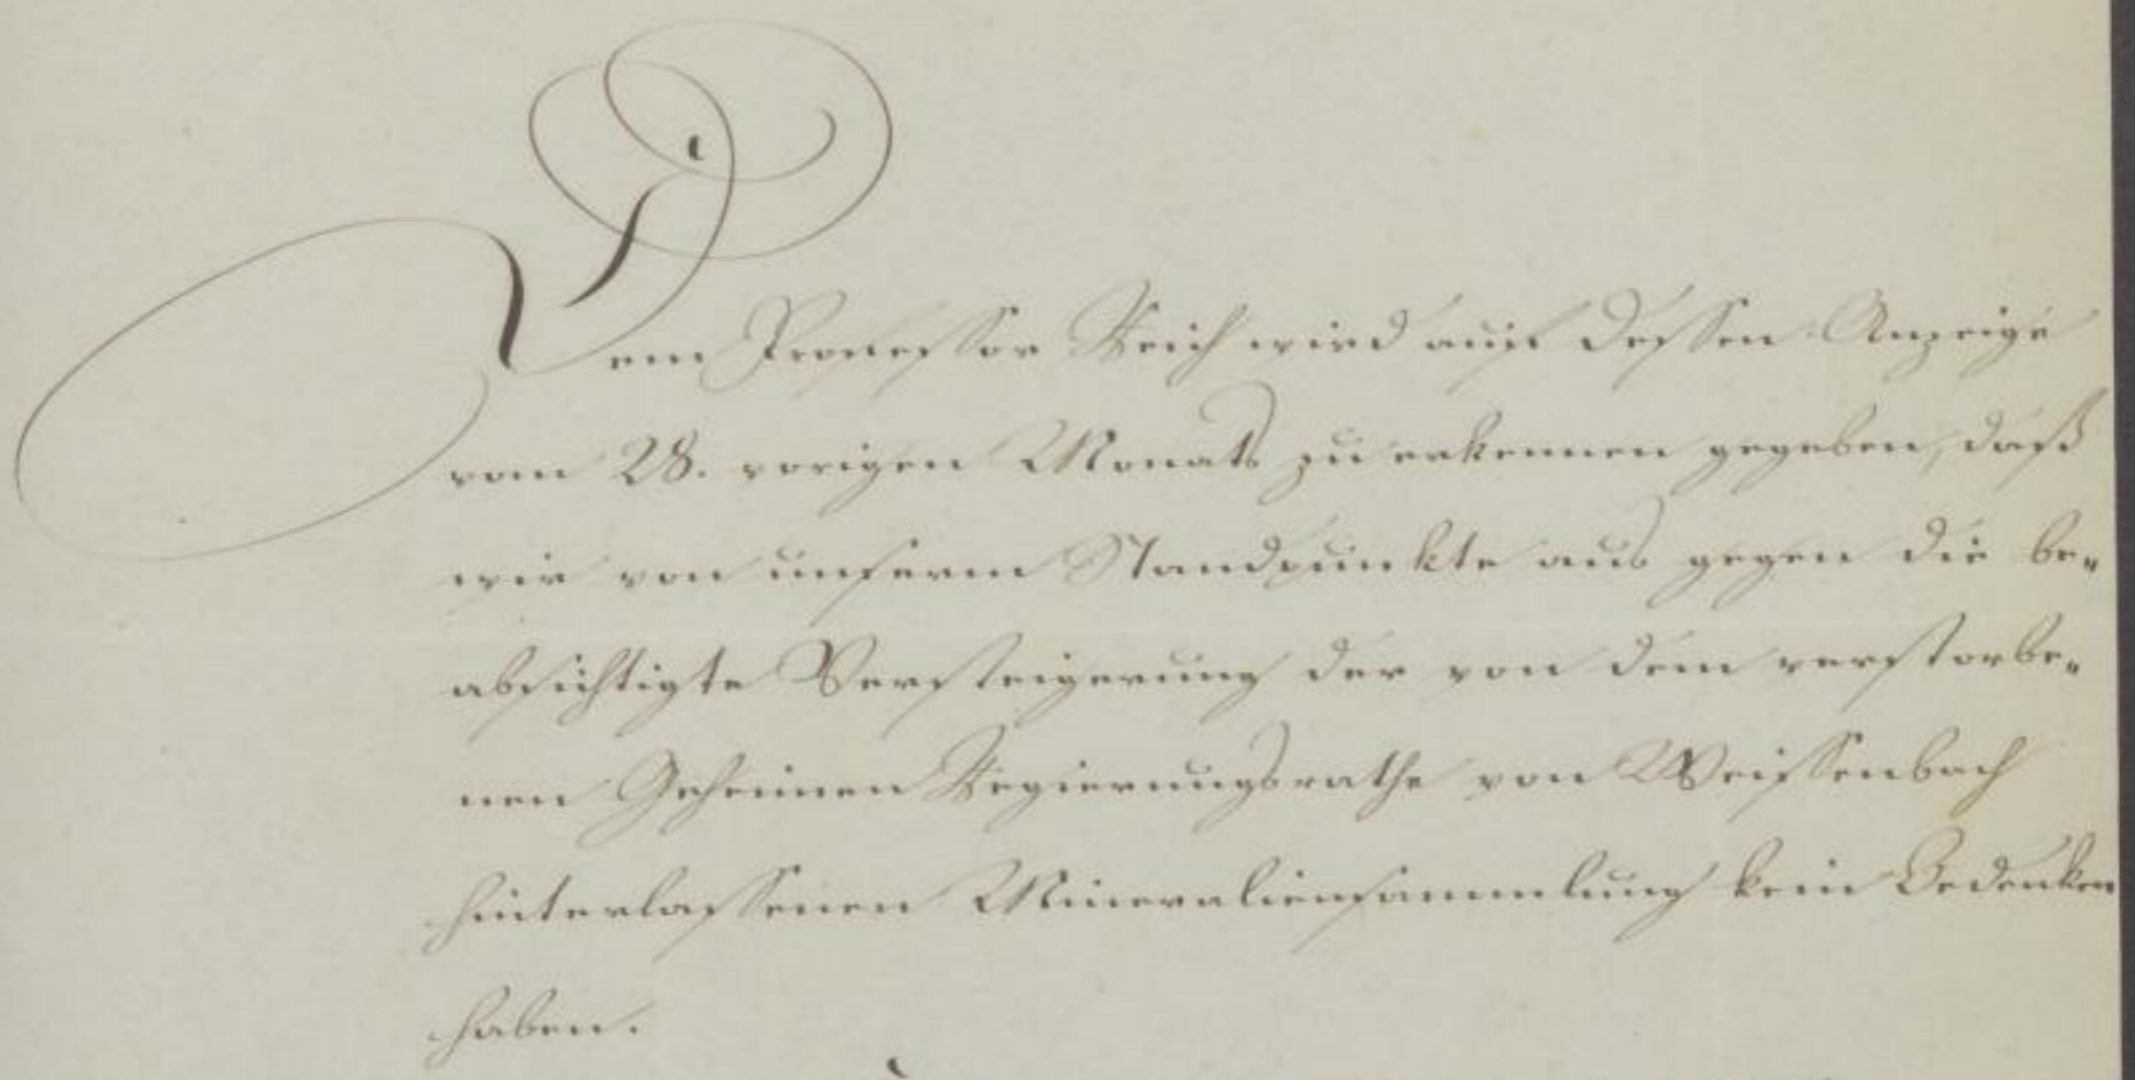 Dem Professor Reich wird auf dessen Anzeige
vom 28. vorigen Monats zu erkennen gegeben, daß
wir von unserm Standpunkte aus gegen die be-
absichtigte Versteigerung der von dem verstorbe-
nen Geheimen Regierungsrathe von Weissenbach
hinterlassenen Mineraliensammlung kein Bedenken
haben.